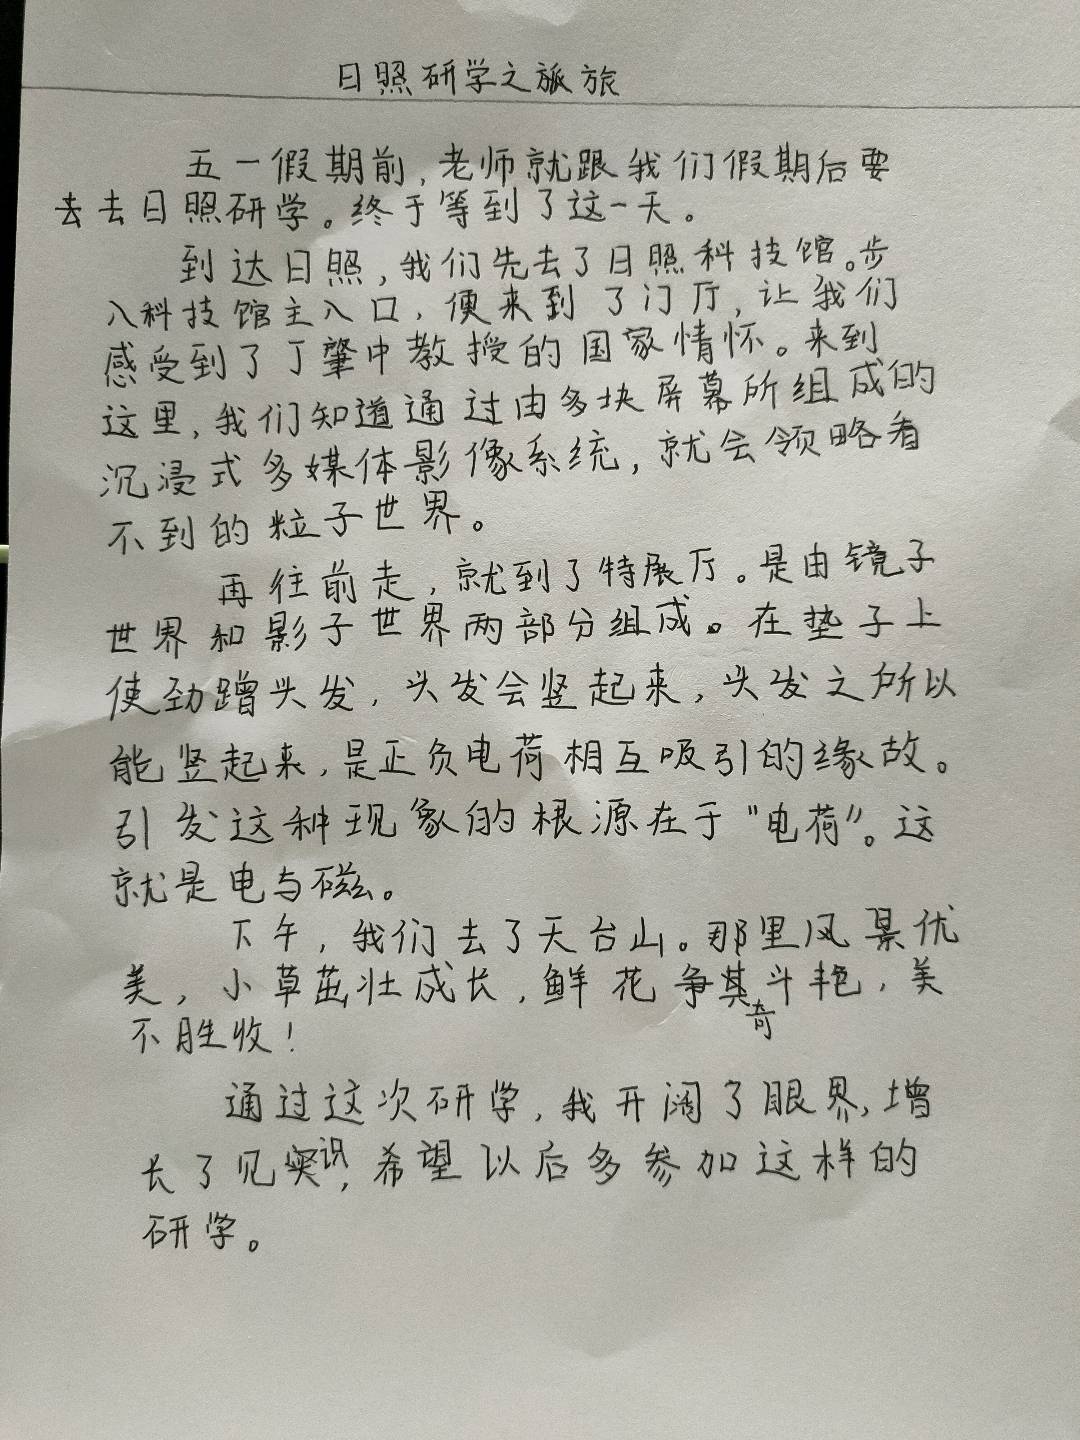 日照研学之旅旅
五一假期前,老师就跟我们假期后要
去去日照研学。终于等到了这一天。
到达日照,我们先去了日照科技馆。步
入科技馆主入口,便来到了门厅,让我们
感受到了丁肇中教授的国家情怀。来到
这里,我们知道通过由多块屏幕所组成的
沉浸式多媒体影像系统,就会领略看
不到的粒子世界。
再往前走,就到了特展厅。是由镜子
世界和影子世界两部分组成。在垫子上
使劲蹭头发,头发会竖起来,头发之所以
能竖起来,是正负电荷相互吸引的缘故。
引发这种现象的根源在于"电荷"。这
就是电与磁。
下午,我们去了天台山。那里风景优
美,小草茁壮成长,鲜花争其奇斗艳,美
不胜收!
通过这次研学,我开阔了眼界,增
长了见识,希望以后多参加这样的
研学。